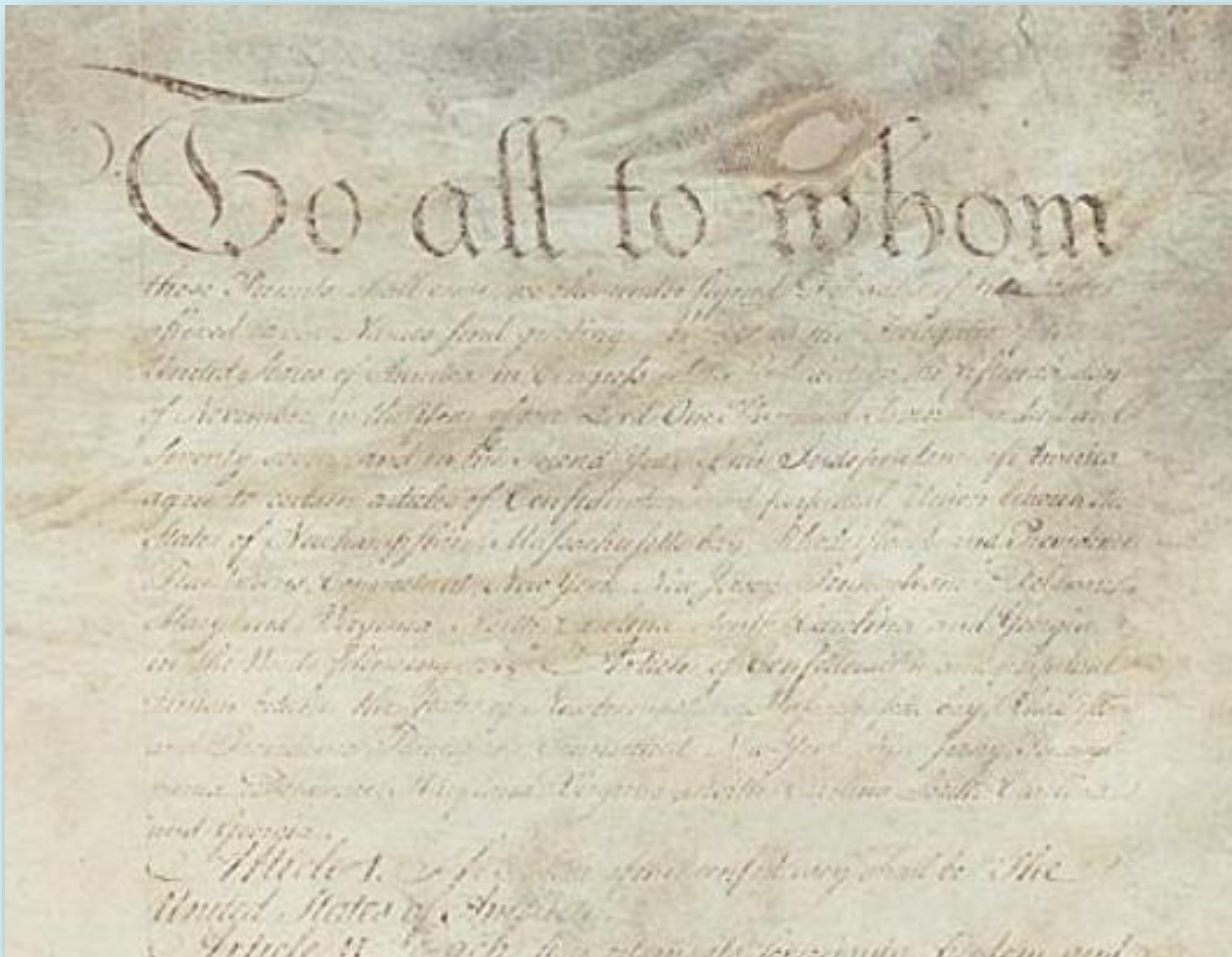 To all to whom
these Presents shall come, we the under signed Delegates of the States
affixed to our Names send greeting. Whereas the Delegates of the
United States of America in Congress assembled did on the fifteenth day
of November in the Year of our Lord One Thousand Seven Hundred and
Seventy seven, and in the Second Year of the Independence of America
agree to certain articles of Confederation and perpetual Union between the
States of Newhampshire, Massachusetts-bay, Rhodeisland and Providence
Plantations, Connecticut, New York, New Jersey, Pennsylvania, Delaware,
Maryland, Virginia, North Carolina, South Carolina and Georgia
in the Words following, viz. Articles of Confederation and perpetual
Union between the States of Newhampshire, bay,
and Providence Plantations, Connecticut, New York, New Jersey,
Delaware, Maryland, Virginia, North Carolina, South
and Georgia.
Article I. The of this confederacy shall be The
United States of America.
Article II. Each retains its sovereignty, freedom and